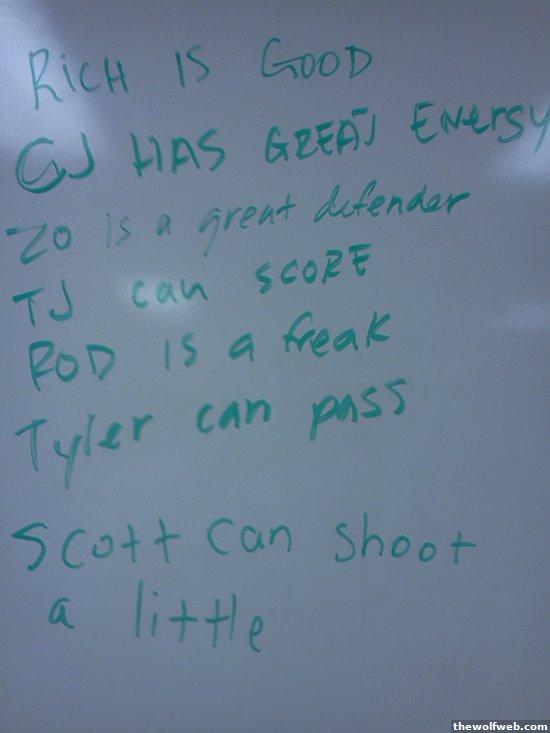 RiCH IS GOOD
CJ HAS GREAT ENERGY
ZO is a great defender
TJ can SCORE
ROD IS a freak
Tyler can pass
Scott can shoot
a little
thewolfweb.com